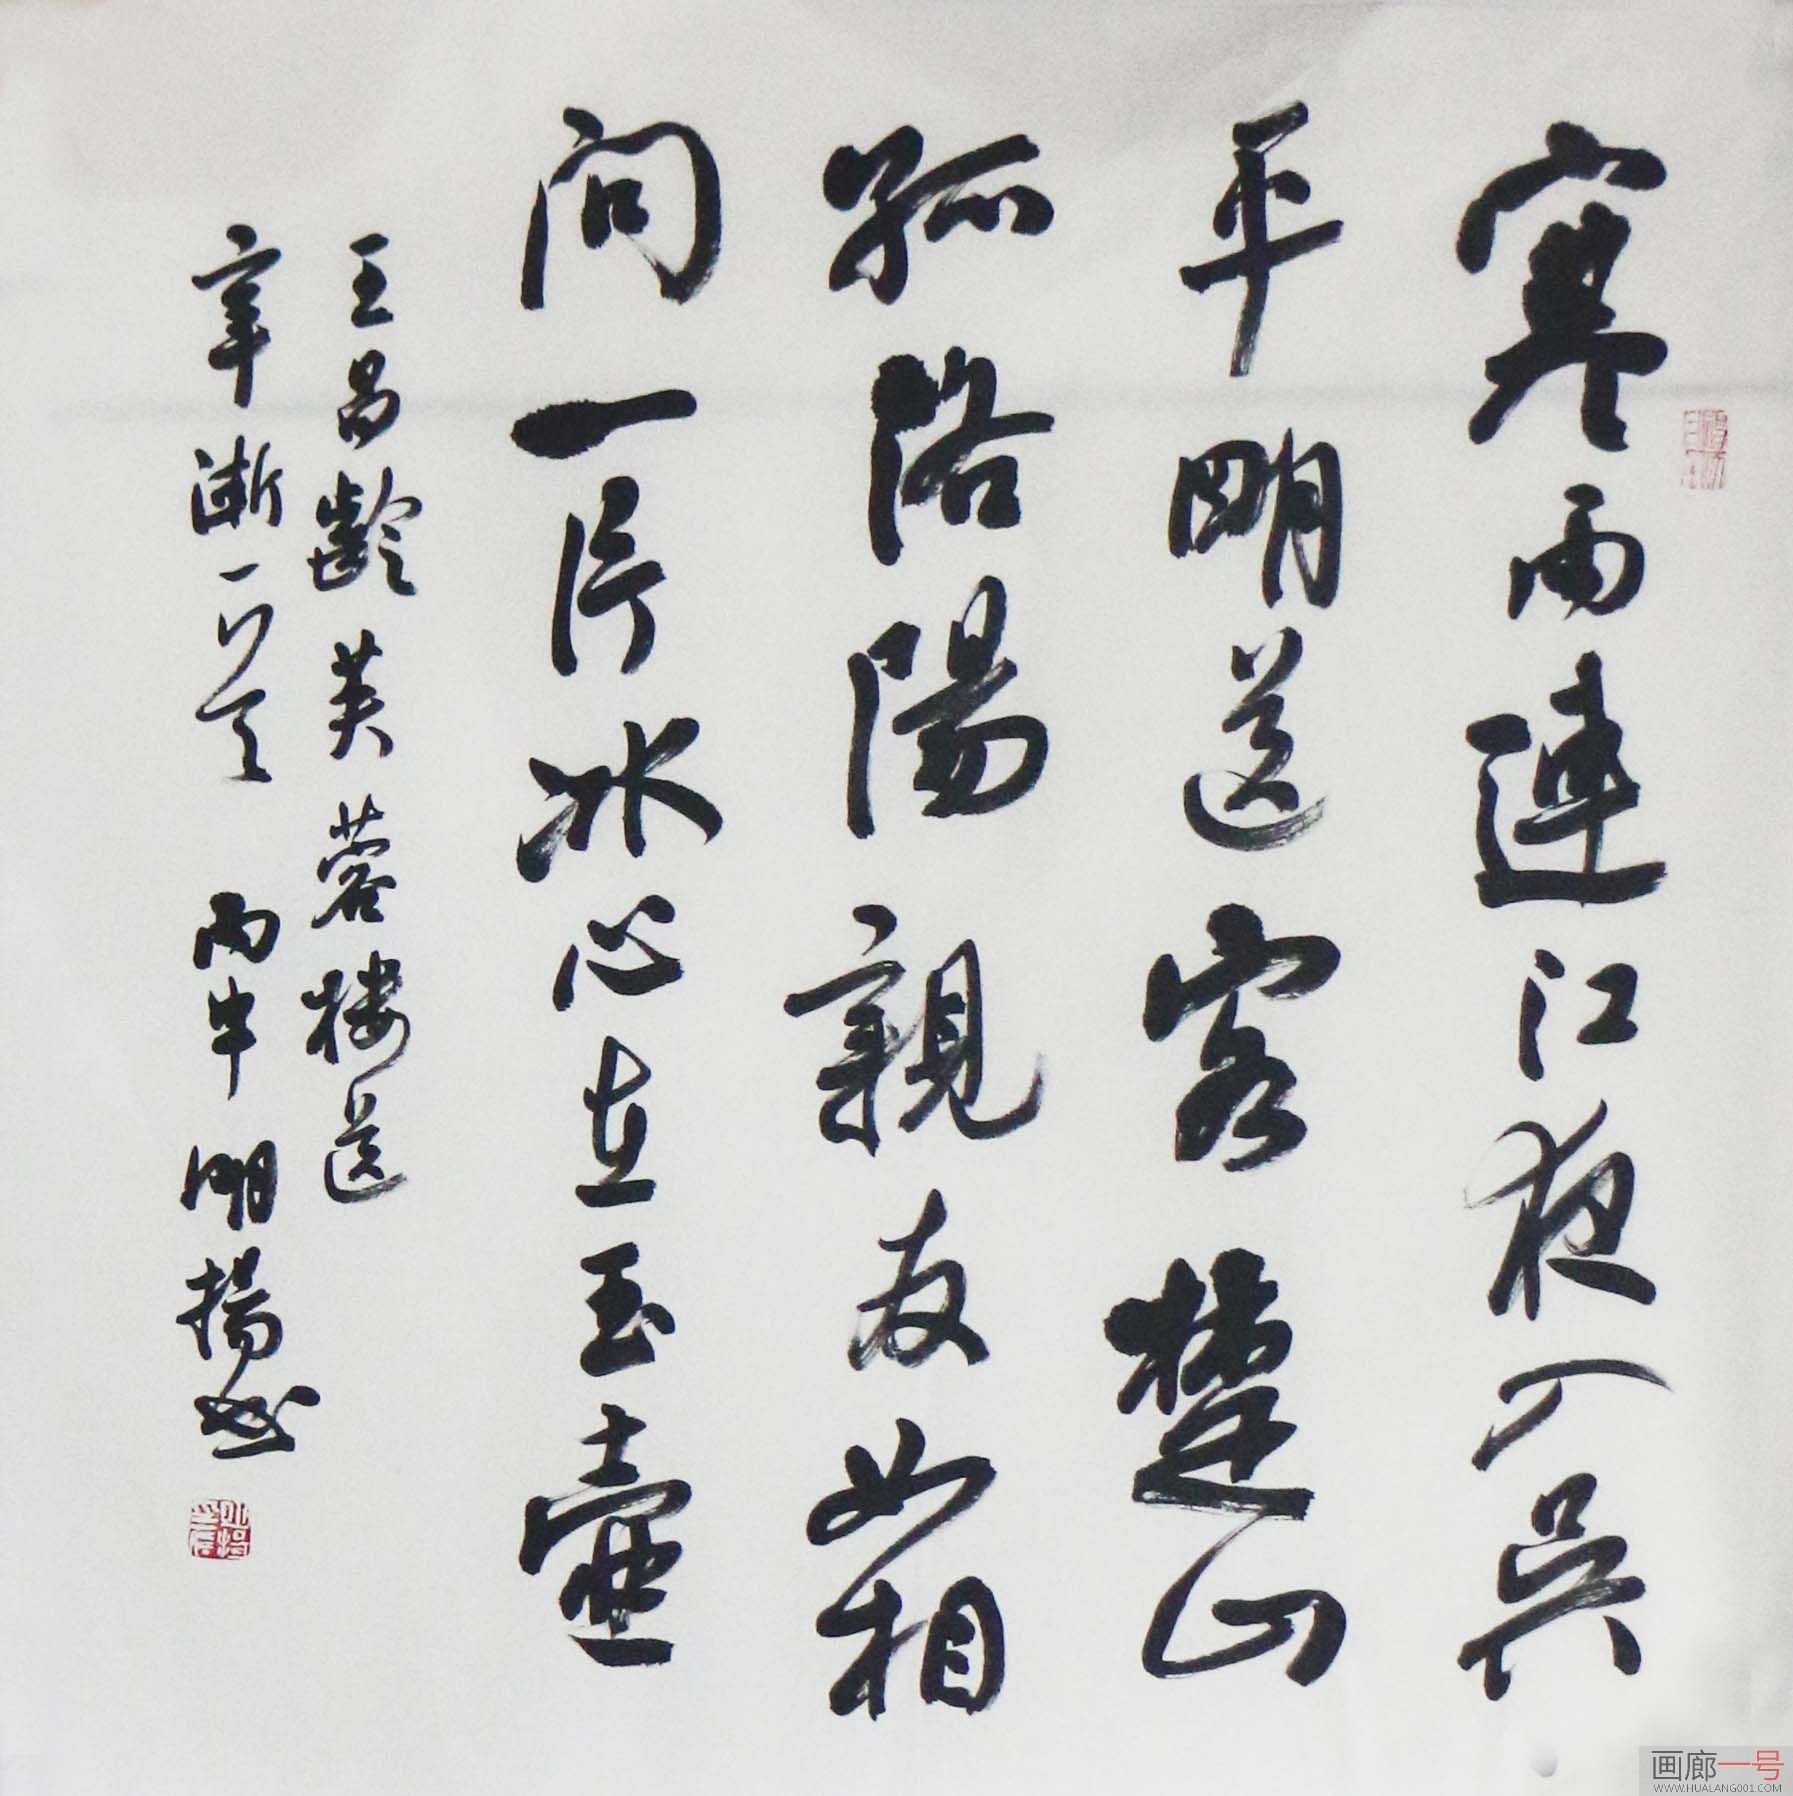 寒雨連江夜入吳
平明送客楚山
孤洛陽親友如相
問一片冰心在玉壺
王昌齡芙蓉樓送
辛漸一首 丙申 明揚書
画廊一号
WWW.HUALANG001.COM